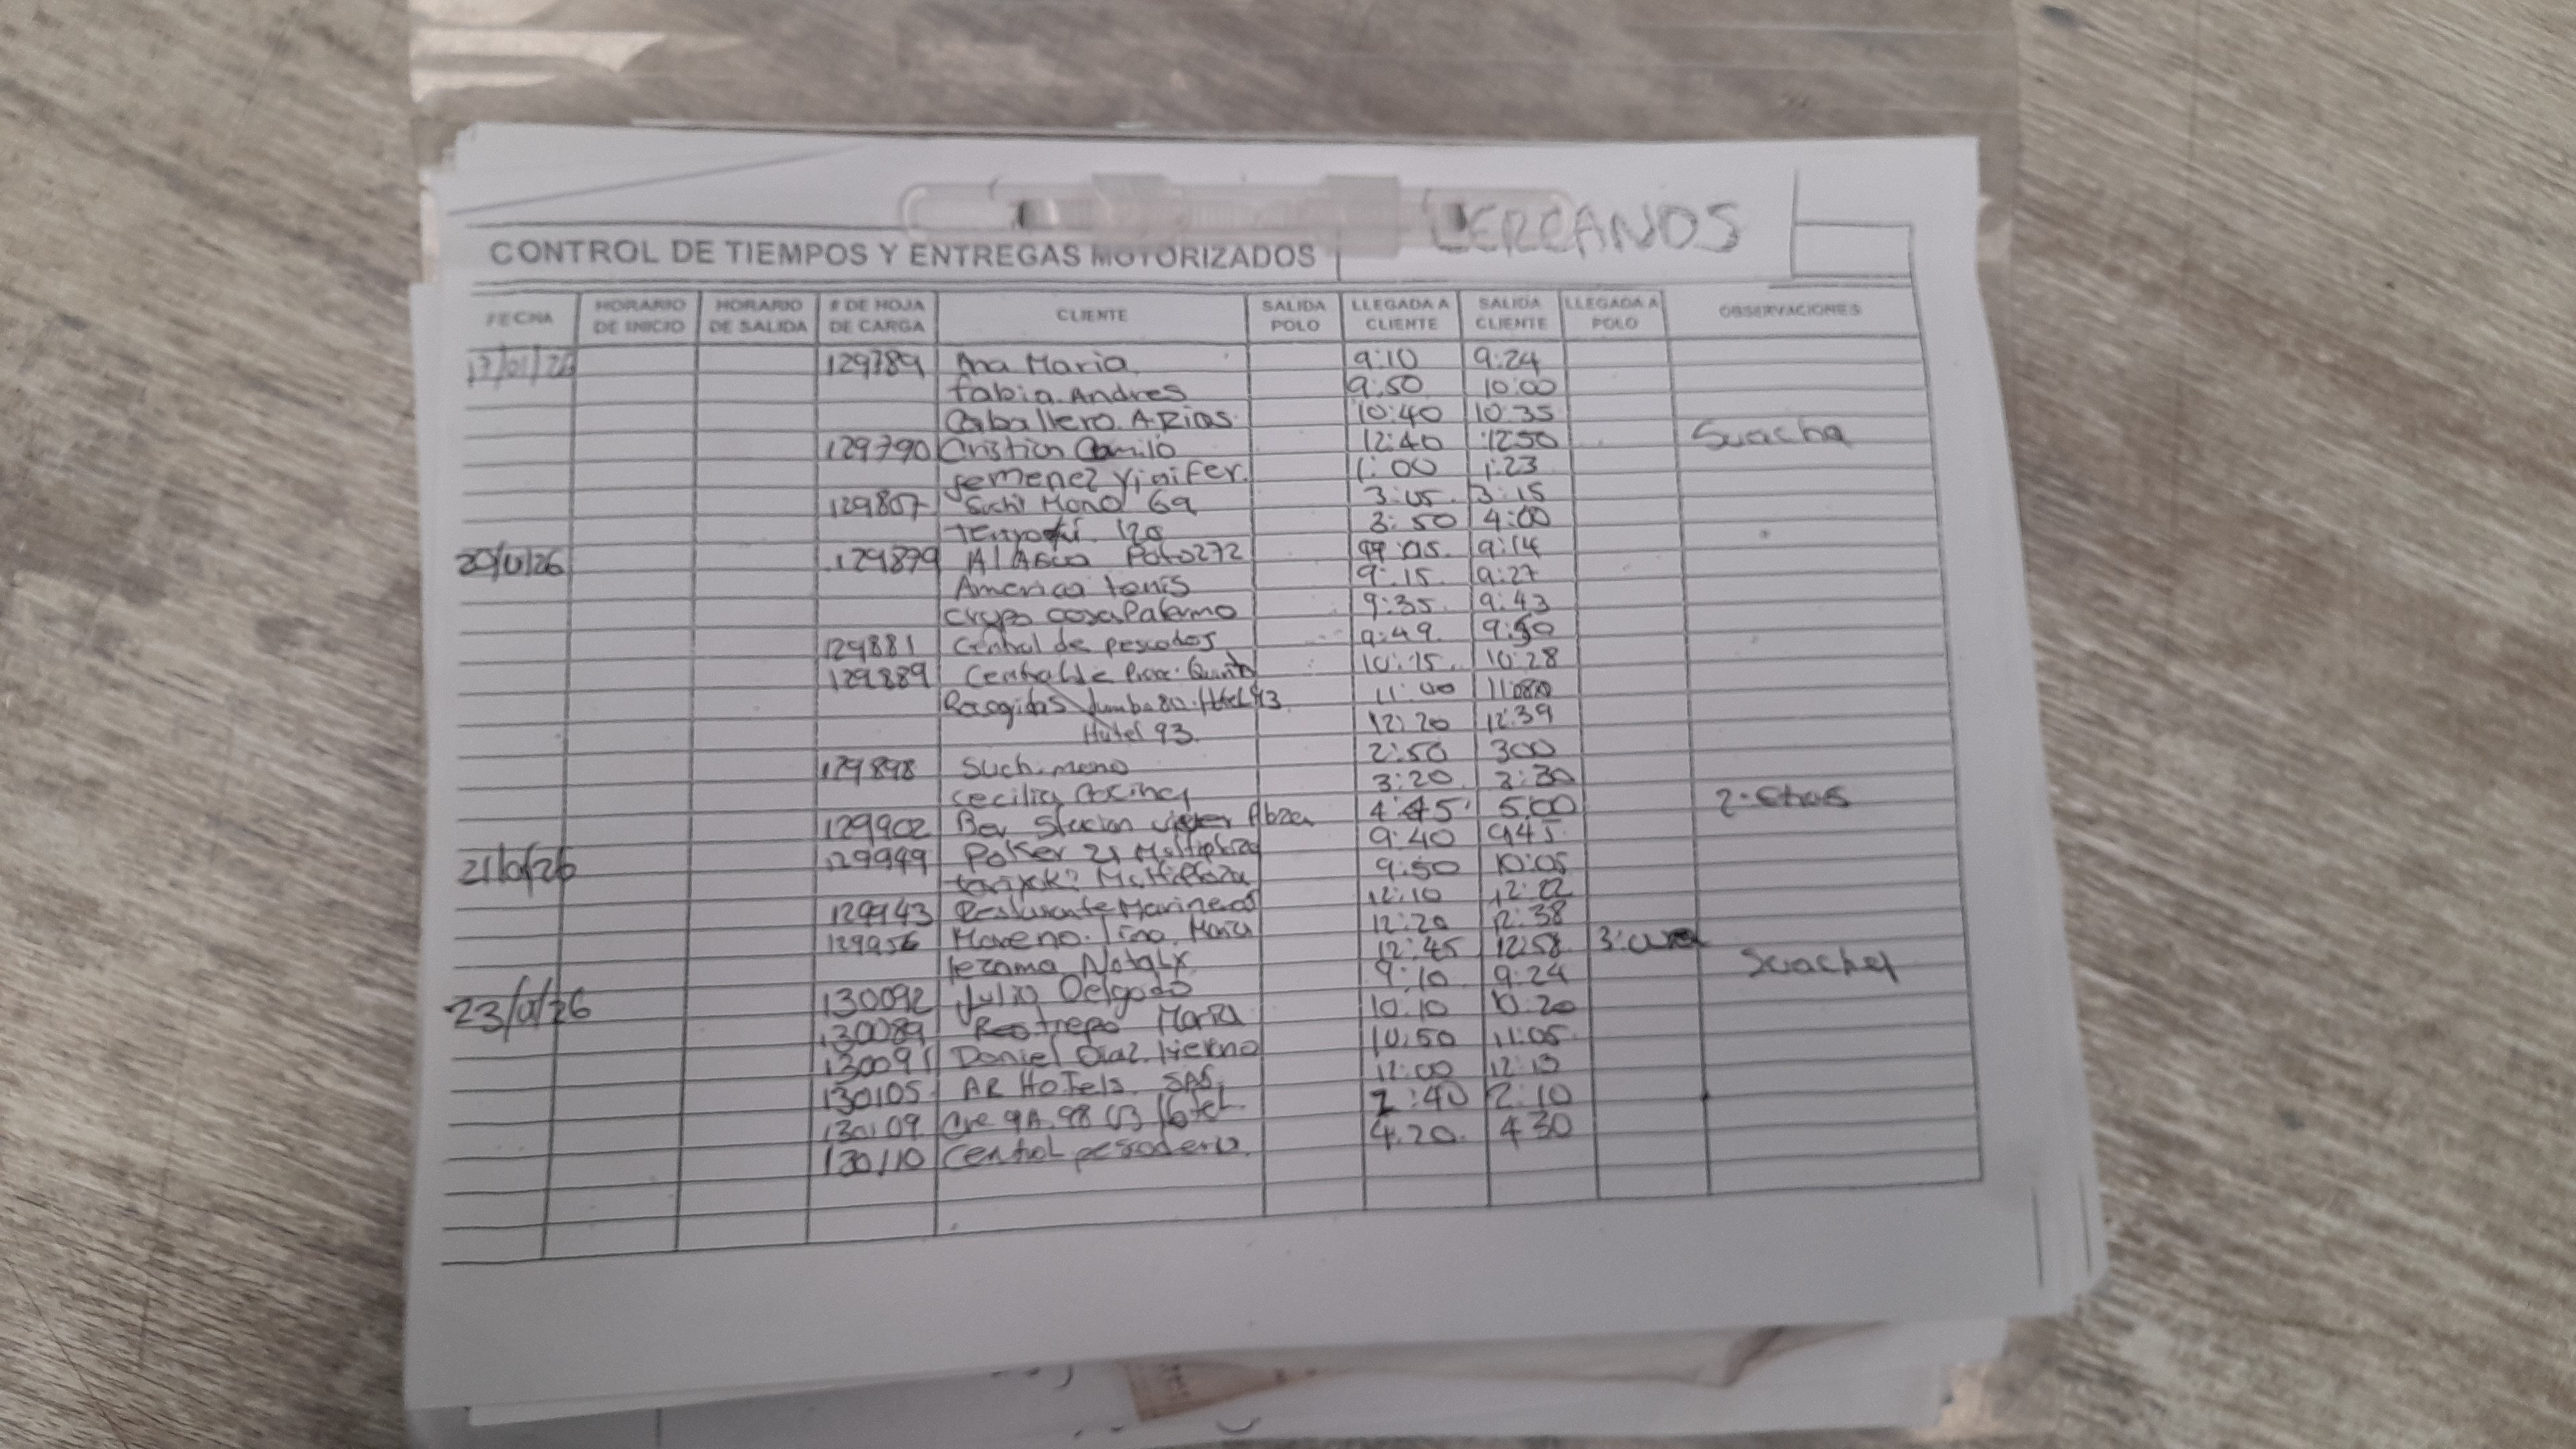 CERCANOS
CONTROL DE TIEMPOS Y ENTREGAS MOTORIZADOS
FECHA HORARIO DE INICIO HORARIO DE SALIDA # DE HOJA DE CARGA CLIENTE SALIDA POLO LLEGADA A CLIENTE SALIDA CLIENTE LLEGADA A POLO OBSERVACIONES
17/01/26 129789 Ana Maria 9:10 9:24
fabia Andres 9:50 10:00
Caballero ARias 10:40 10:35
129790 Cristian Camilo 12:40 12:50 Suacha
1:00 1:23
129807 Suchi Mono 69 3:05 3:15
120 3:50 4:00
20/01/26 129879 Al Agua Pato272 9:05 9:14
America tenis 9:15 9:27
Grupo casa Palermo 9:35 9:43
129881 Central de pescados 9:49 9:50
129889 Central de 10:15 10:28
Recogidas Jumbo 80. Hotel 93 11:00
Hotel 93. 12:20 12:39
129898 Suchi mono 2:50 300
Cecilia Cocina 3:20 3:30
129902 Bev Stacion 4:45 5:00
21/01/26 129949 Poker 21 Multiplaza 9:40 945
Multiplaza 9:50 10:05
129943 Restaurante Marineros 12:10 12:22
129956 Moreno. Tina Maria 12:20 12:38
lezama Nataly 12:45 12:58 Suacha
23/01/26 130092 Julio Delgado 9:10 9:24
130089 Restrepo Maria 10:10 10:20
130091 Daniel Diaz 10:50 11:05
130105 AR HoTels SAS 12:00 12:13
130109 Cre 9A. 98 03 Hotel 2:40 2:10
130110 Central pescaderia 4:20 430